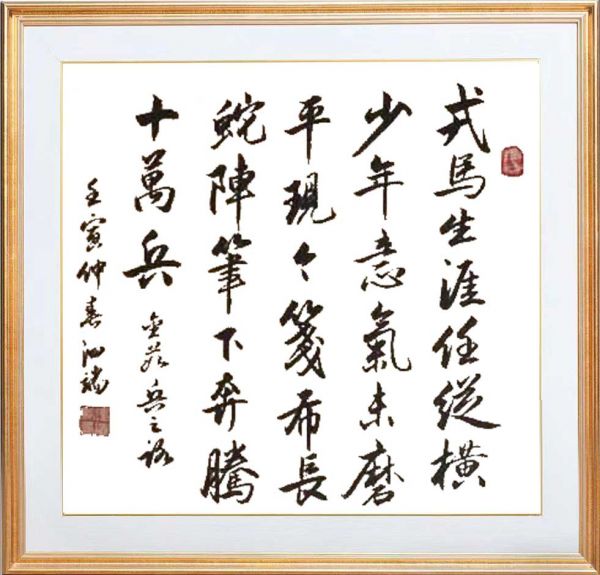 戎馬生涯任縱橫
少年意氣未磨
平現今箋布長
鮀陣筆下奔騰
十萬兵 兵之路
壬寅仲春